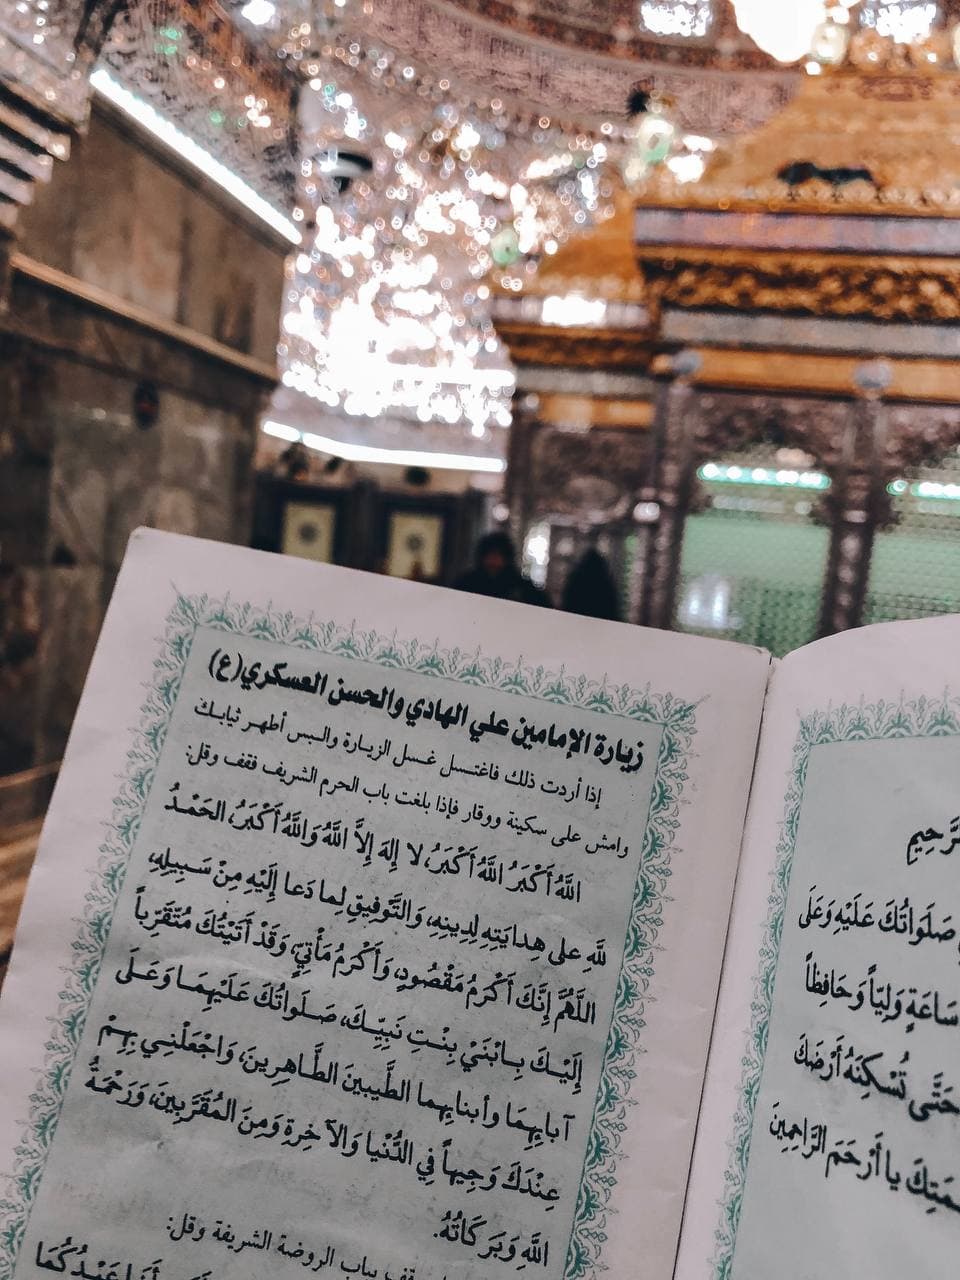 زيارة الإمامين علي الهادي والحسن العسكري(ع)
إذا أردت ذلك فاغتسل غسل الزيارة والبس أطهر ثيابك
وامش على سكينة ووقار فإذا بلغت باب الحرم الشريف فقف وقل:
اللَّهُ أَكْبَرُ اللَّهُ أَكْبَرُ، لا إِلهَ إِلاَّ اللَّهُ وَاللَّهُ أَكْبَرُ، الحَمْدُ
للَّهِ على هِدايَتِهِ لِدِينِهِ، وَالتَّوفِيقِ لِما دَعا إِلَيْهِ مِنْ سَبِيلِهِ،
اللَّهُمَّ إِنَّكَ أَكْرَمُ مَقْصُودٍ، وَأَكْرَمُ مَأْتِيٍّ، وَقَدْ أَتَيْتُكَ مُتَقَرِّباً
إِلَيْكَ بِابْنَيْ بِنْتِ نَبِيِّكَ، صَلَواتُكَ عَلَيْهِمَا وَعَلَى
آبائِهِمَا وأبنائِهِما الطَّيبينَ الطَّاهِرِينَ، وَاجْعَلْنِي بِهِمْ
عِنْدَكَ وَجِيهاً فِي الدُّنْيا وَالآخِرةِ وَمِنَ المُقَرَّبِينَ، وَرَحْمَةُ
اللَّهِ وَبَرَكَاتُهُ.
بباب الروضة الشريفة وقل:
صَلَواتُكَ عَلَيْهِ وَعَلَى
سَاعَةٍ وَلِيّاً وَحَافِظاً
حَتَّى تُسْكِنَهُ أَرْضَكَ
يا أَرْحَمَ الرَّاحِمِينَ